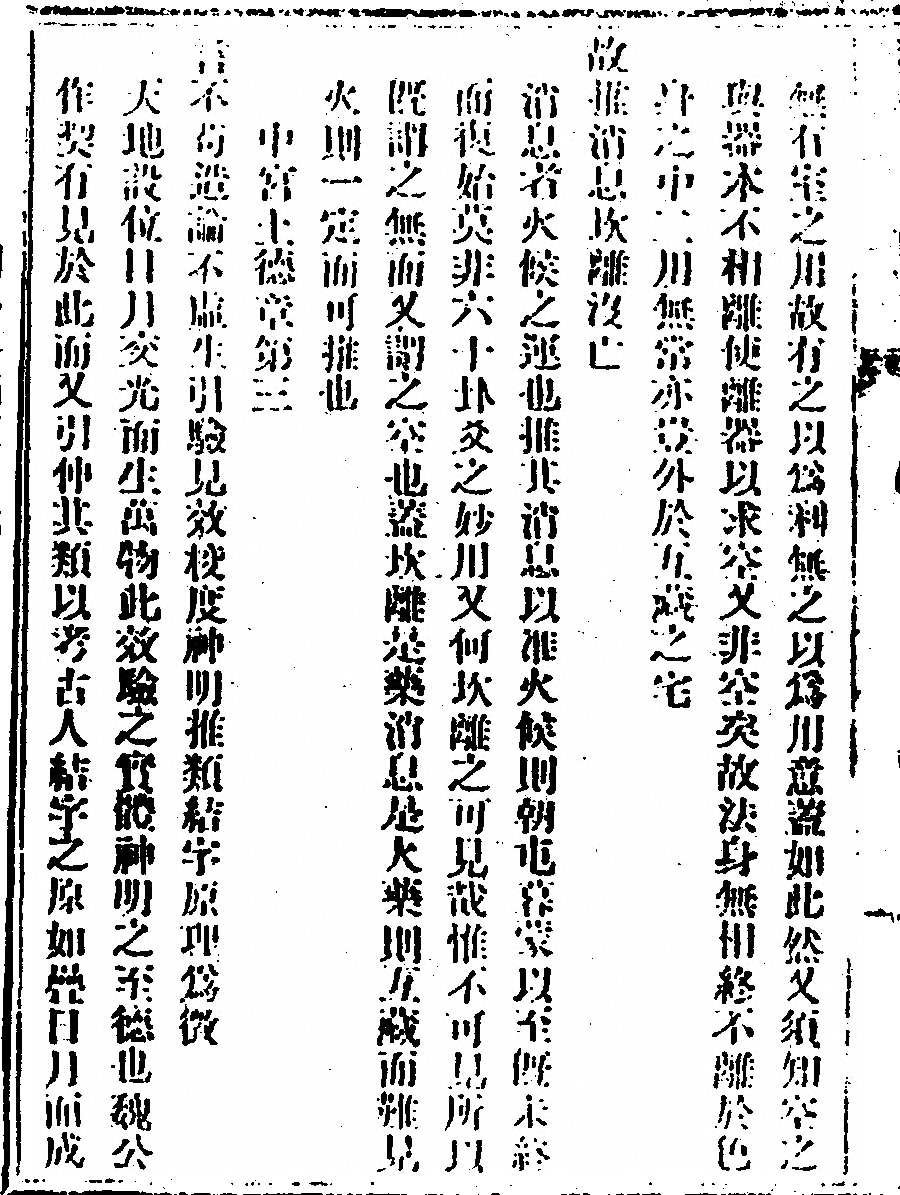 無有室之用故有之以爲利無之以爲用意蓋如此然又須知空之
與器本不相離使離器以求空又非空矣故法身無相終不離於色
身之中二用無常亦豈外於互藏之宅
故推消息坎離沒亡
消息者火候之運也推其消息以准火候則朝屯暮蒙以至既未終
而復始莫非六十卦爻之妙用又何坎離之可見哉惟不可見所以
既謂之無而又謂之空也蓋坎離是藥消息是火藥則互藏而難見
火則一定而可推也
中宮土德章第三
言不苟造論不虛生引驗見效校度神明推類結字原理爲徵
天地設位日月交光而生萬物此效驗之實體神明之至德也魏公
作契有見於此而又引伸其類以考古人結字之原如疊日月而成